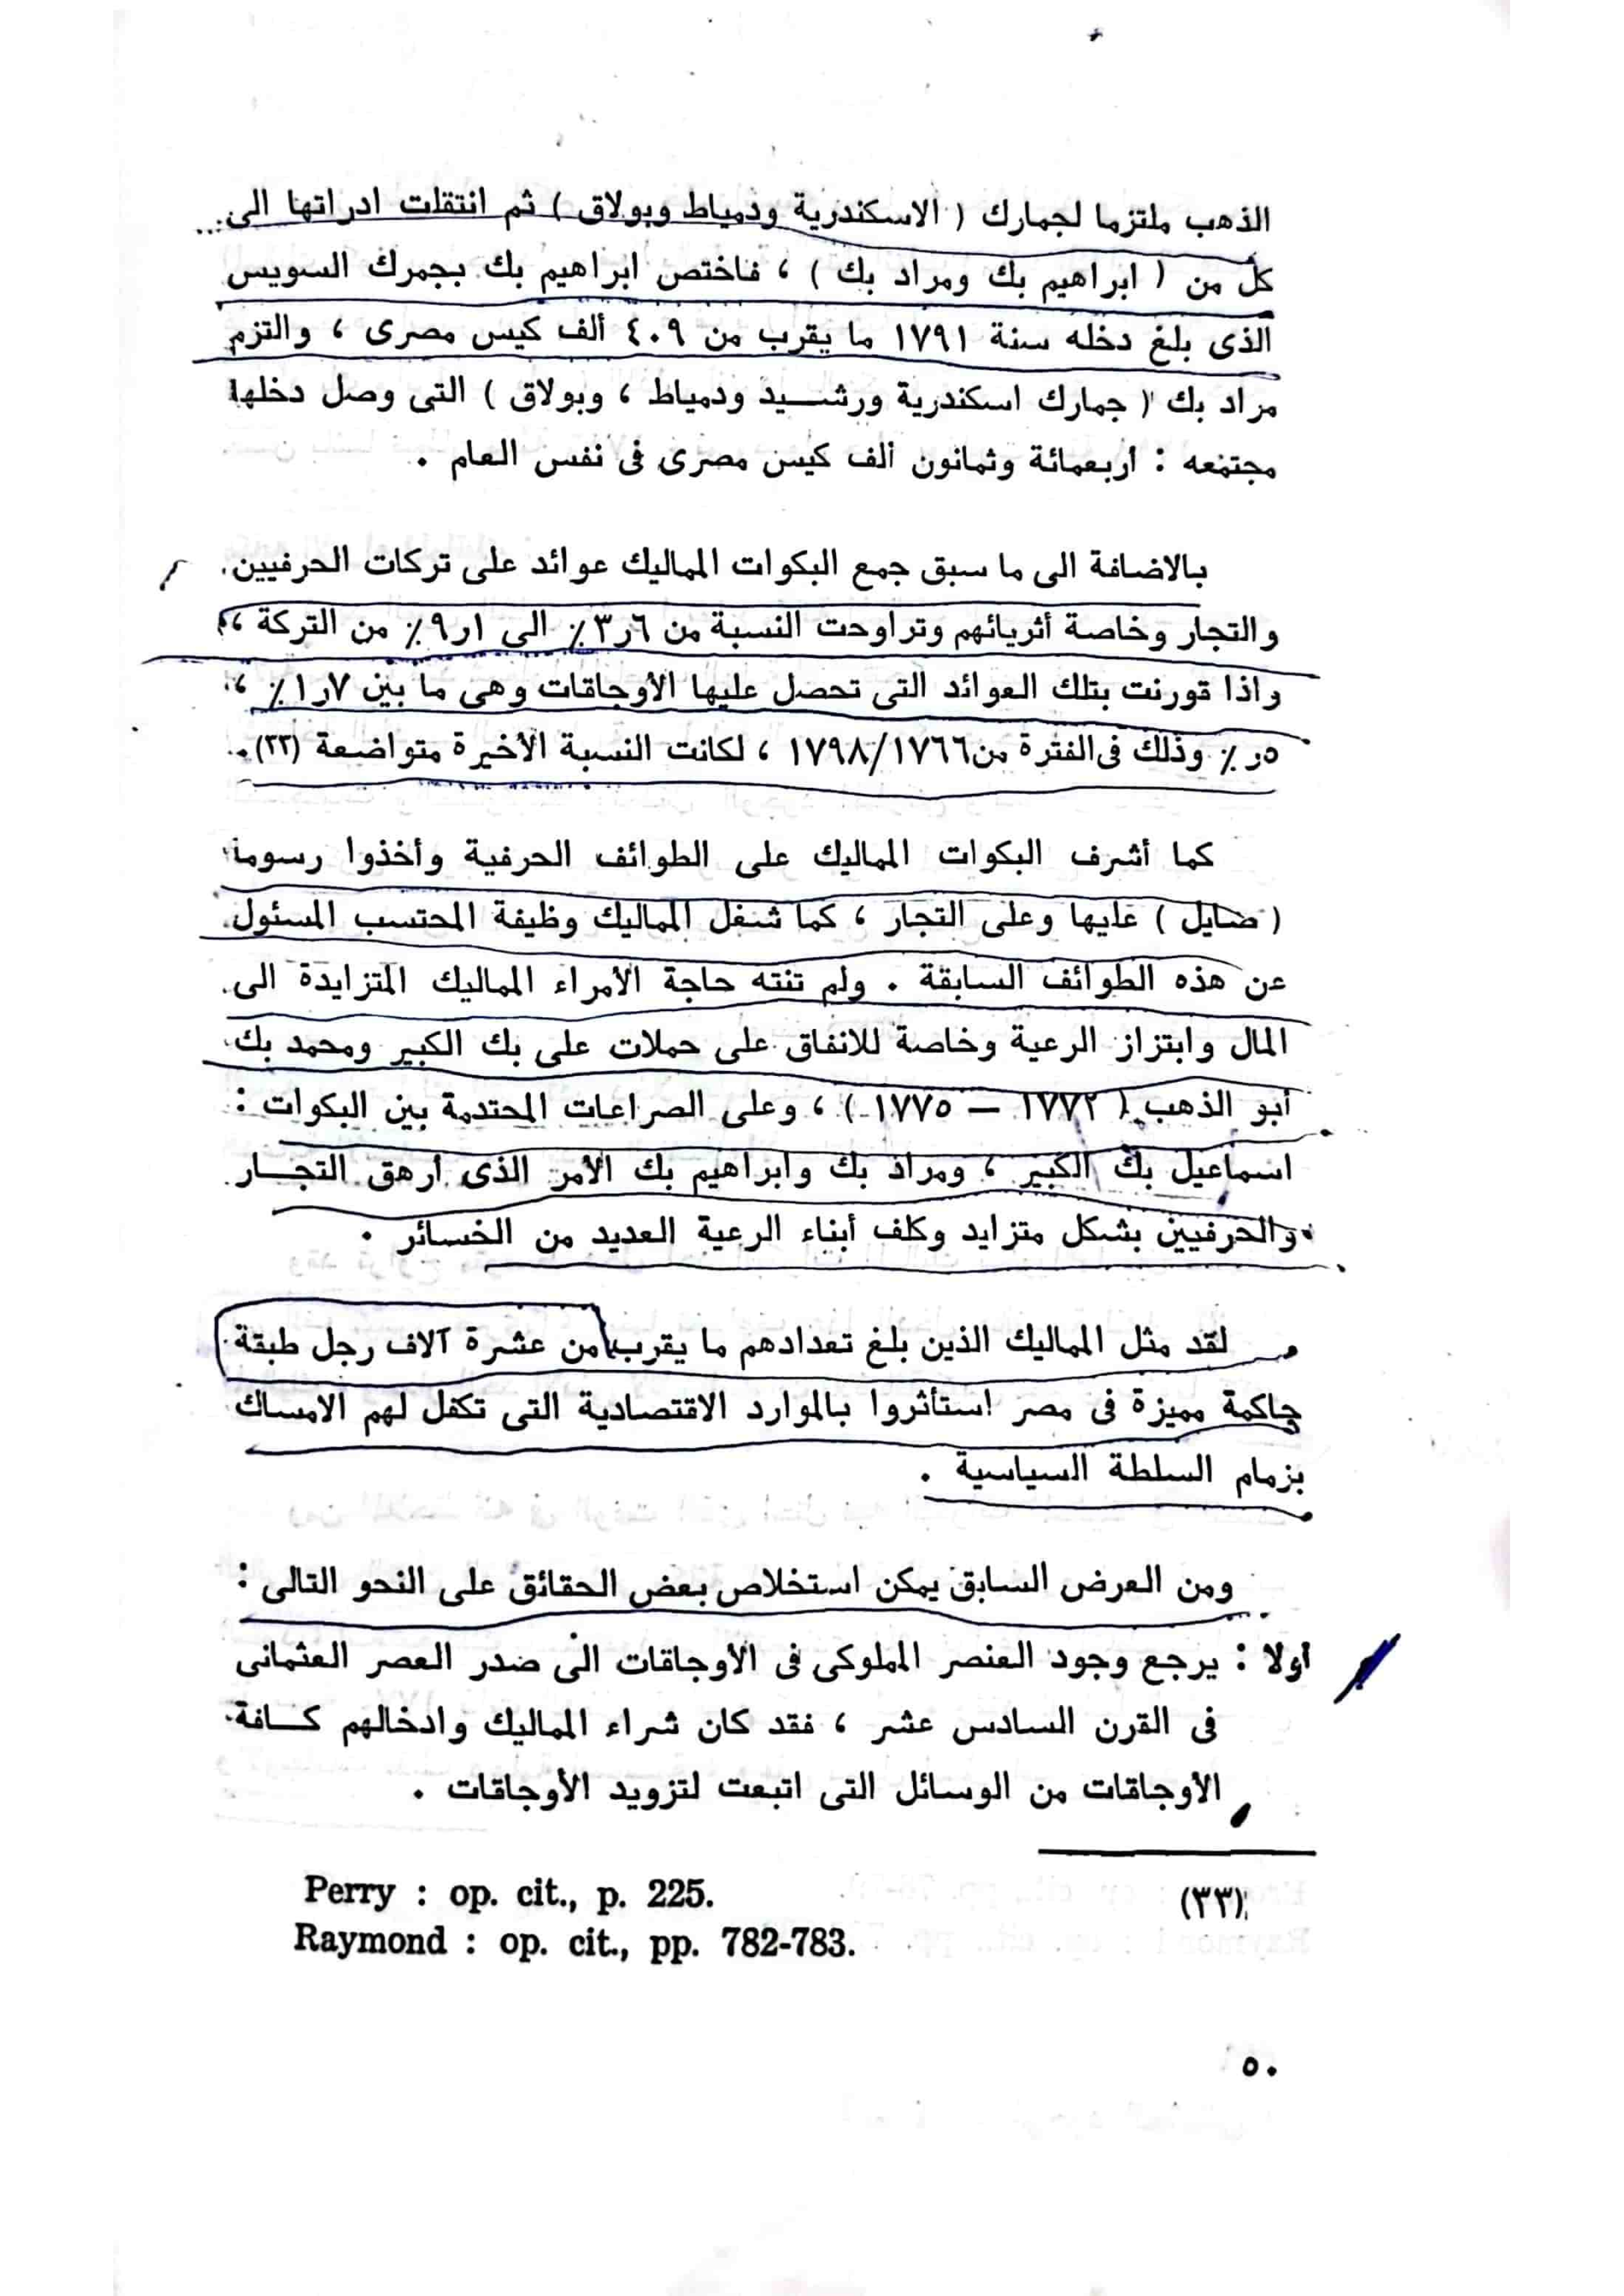 الذهب ملتزما لجمارك ( الاسكندرية ودمياط وبولاق ) ثم انتقلت ادراتها الى
كل من ( ابراهيم بك ومراد بك ) ، فاختص ابراهيم بك بجمرك السويس
الذى بلغ دخله سنة ١٧٩١ ما يقرب من ٤٠٩ ألف كيس مصرى ، والتزم
مراد بك ( جمارك اسكندرية ورشـــيد ودمياط ، وبولاق ) التى وصل دخلها
مجتمعه : أربعمائة وثمانون ألف كيس مصرى فى نفس العام .
بالاضافة الى ما سبق جمع البكوات المماليك عوائد على تركات الحرفيين
والتجار وخاصة أثريائهم وتراوحت النسبة من ٦ر٣٪ الى ١ر٩٪ من التركة ،
واذا قورنت بتلك العوائد التى تحصل عليها الأوجاقات وهى ما بين ٧ر١٪ ،
٥ر٪ وذلك فى الفترة من ١٧٦٦/١٧٩٨ ، لكانت النسبة الأخيرة متواضعة (٣٣) .
كما أشرف البكوات المماليك على الطوائف الحرفية وأخذوا رسوما
( ضايل ) عليها وعلى التجار ، كما شغل المماليك وظيفة المحتسب المسئول
عن هذه الطوائف السابقة . ولم تنته حاجة الأمراء المماليك المتزايدة الى
المال وابتزاز الرعية وخاصة للانفاق على حملات على بك الكبير ومحمد بك
أبو الذهب ( ١٧٧٢ — ١٧٧٥ ) ، وعلى الصراعات المحتدمة بين البكوات :
اسماعيل بك الكبير ، ومراد بك وابراهيم بك الأمر الذى أرهق التجــار
والحرفيين بشكل متزايد وكلف أبناء الرعية العديد من الخسائر .
لقد مثل المماليك الذين بلغ تعدادهم ما يقرب من عشرة آلاف رجل طبقة
حاكمة مميزة فى مصر استأثروا بالموارد الاقتصادية التى تكفل لهم الامساك
بزمام السلطة السياسية .
ومن العرض السابق يمكن استخلاص بعض الحقائق على النحو التالى :
أولا : يرجع وجود العنصر المملوكى فى الأوجاقات الى صدر العصر العثمانى
فى القرن السادس عشر ، فقد كان شراء المماليك وادخالهم كــافة
الأوجاقات من الوسائل التى اتبعت لتزويد الأوجاقات .
(٣٣) Perry : op. cit., p. 225.
Raymond : op. cit., pp. 782-783.
٥٠